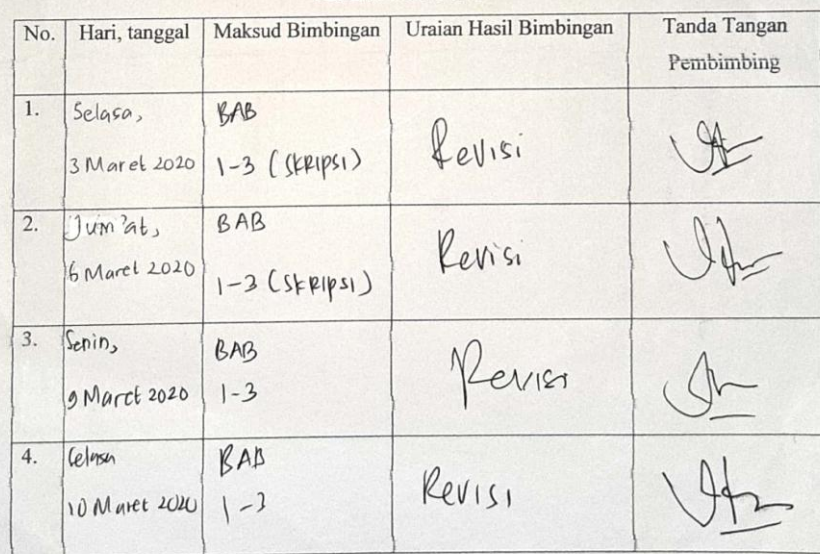 No. Hari, tanggal Maksud Bimbingan Uraian Hasil Bimbingan Tanda Tangan
Pembimbing
1. Selasa, BAB
3 Maret 2020 1-3 (SKRIPSI) Revisi
2. Jum'at, BAB
6 Maret 2020 1-3 (SKRIPSI) Revisi
3. Senin, BAB
9 Maret 2020 1-3 Revisi
4. Selasa BAB
10 Maret 2020 1-3 Revisi